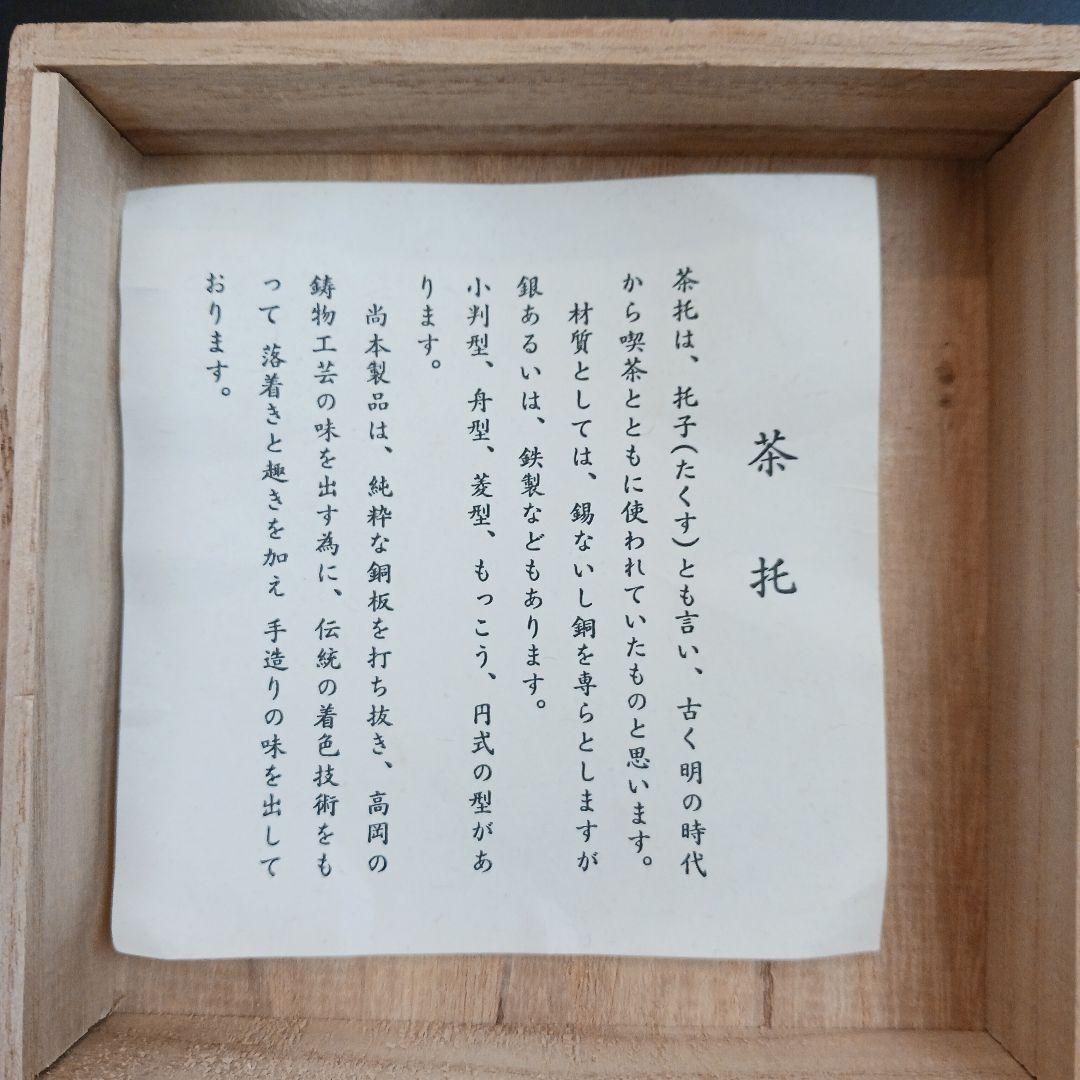 茶托
茶托は、托子(たくす)とも言い、古く明の時代
から喫茶とともに使われていたものと思います。
材質としては、錫ないし銅を専らとしますが
銀あるいは、鉄製などもあります。
小判型、舟型、菱型、もっこう、円式の型があ
ります。
尚本製品は、純粋な銅板を打ち抜き、高岡の
鋳物工芸の味を出す為に、伝統の着色技術をも
って 落着きと趣きを加え 手造りの味を出して
おります。